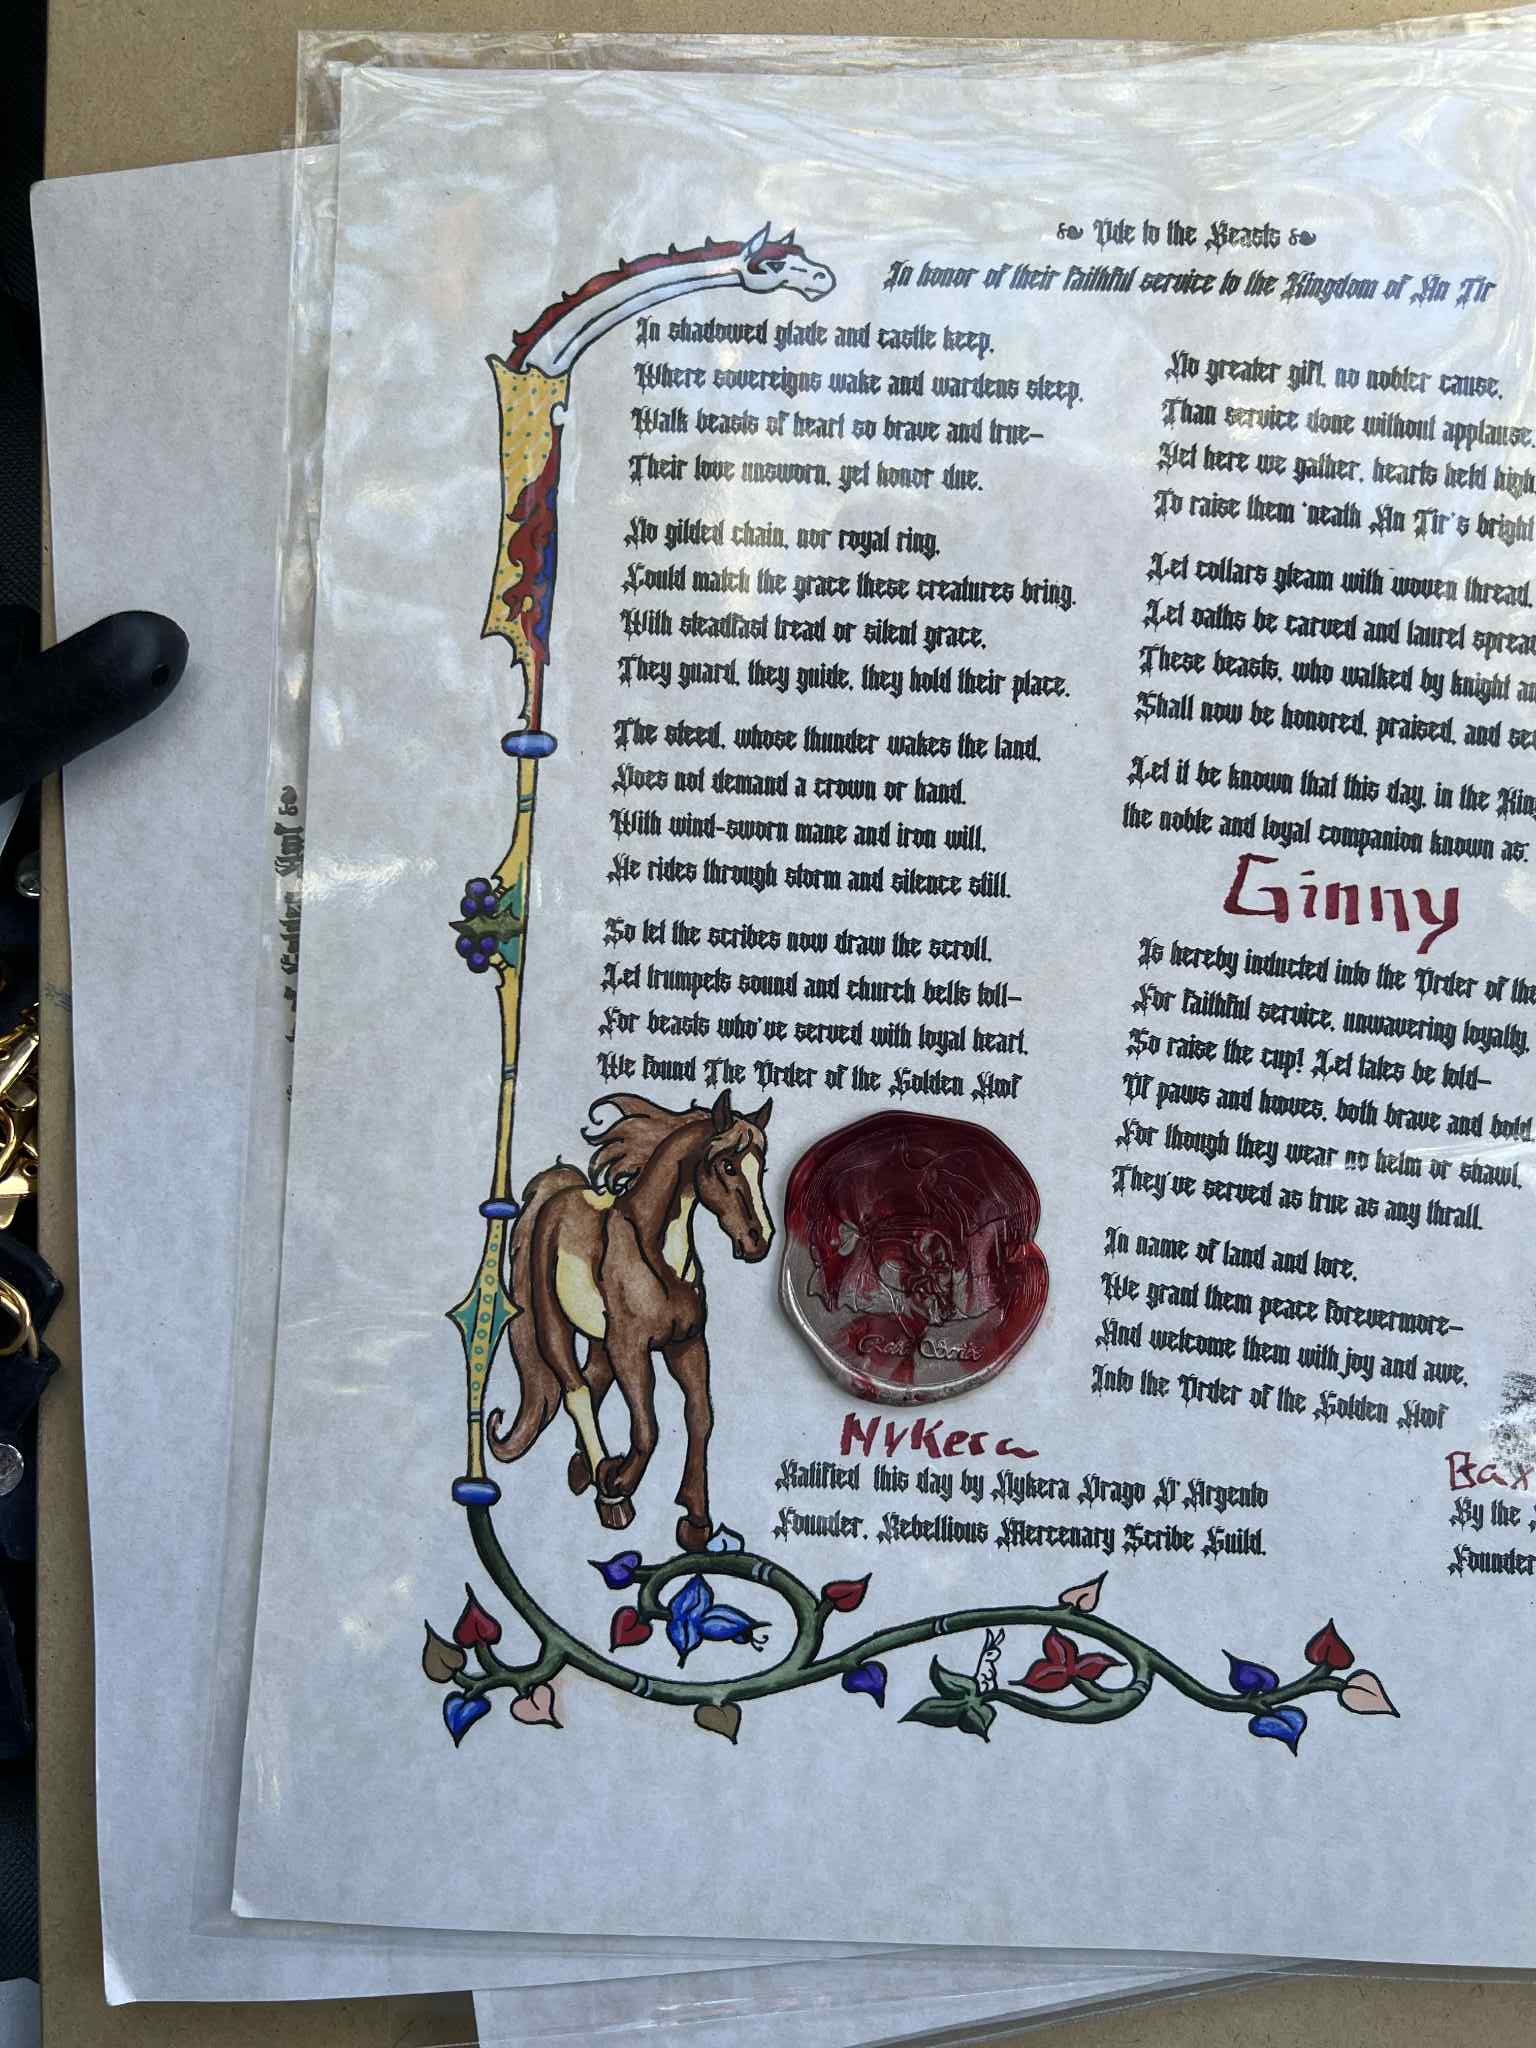 Ode to the Beasts
In honor of their faithful service to the Kingdom of An Tir
In shadowed glade and castle keep,
Where sovereigns wake and wardens sleep,
Walk beasts of heart so brave and true—
Their love unsworn, yet honor due.
No gilded chain, nor royal ring,
Could match the grace these creatures bring.
With steadfast tread or silent grace,
They guard, they guide, they hold their place.
The steed, whose thunder wakes the land,
Does not demand a crown or hand.
With wind-sworn mane and iron will,
He rides through storm and silence still.
So let the scribes now draw the scroll,
Let trumpets sound and church bells toll—
For beasts who've served with loyal heart,
We found The Order of the Golden Hoof
No greater gift, no nobler cause,
Than service done without applause.
Yet here we gather, hearts held high,
To raise them 'neath An Tir's bright
Let collars gleam with woven thread,
Let oaths be carved and laurel
These beasts, who walked by knight
Shall now be honored, praised, and
Let it be known that this day, in the
the noble and loyal companion known as:
Ginny
Is hereby inducted into the Order of the
For faithful service, unwavering loyalty,
So raise the cup! Let tales be told—
Of paws and hooves, both brave and bold,
For though they wear no helm or shawl,
They've served as true as any thrall.
In name of land and lore,
We grant them peace forevermore—
And welcome them with joy and awe,
Into the Order of the Golden Hoof
Rose Scribe
Nykera
Ratified this day by Nykera Drago D'Argento
Founder, Rebellious Mercenary Scribe Guild.
By the
Founder
Golden Hoof